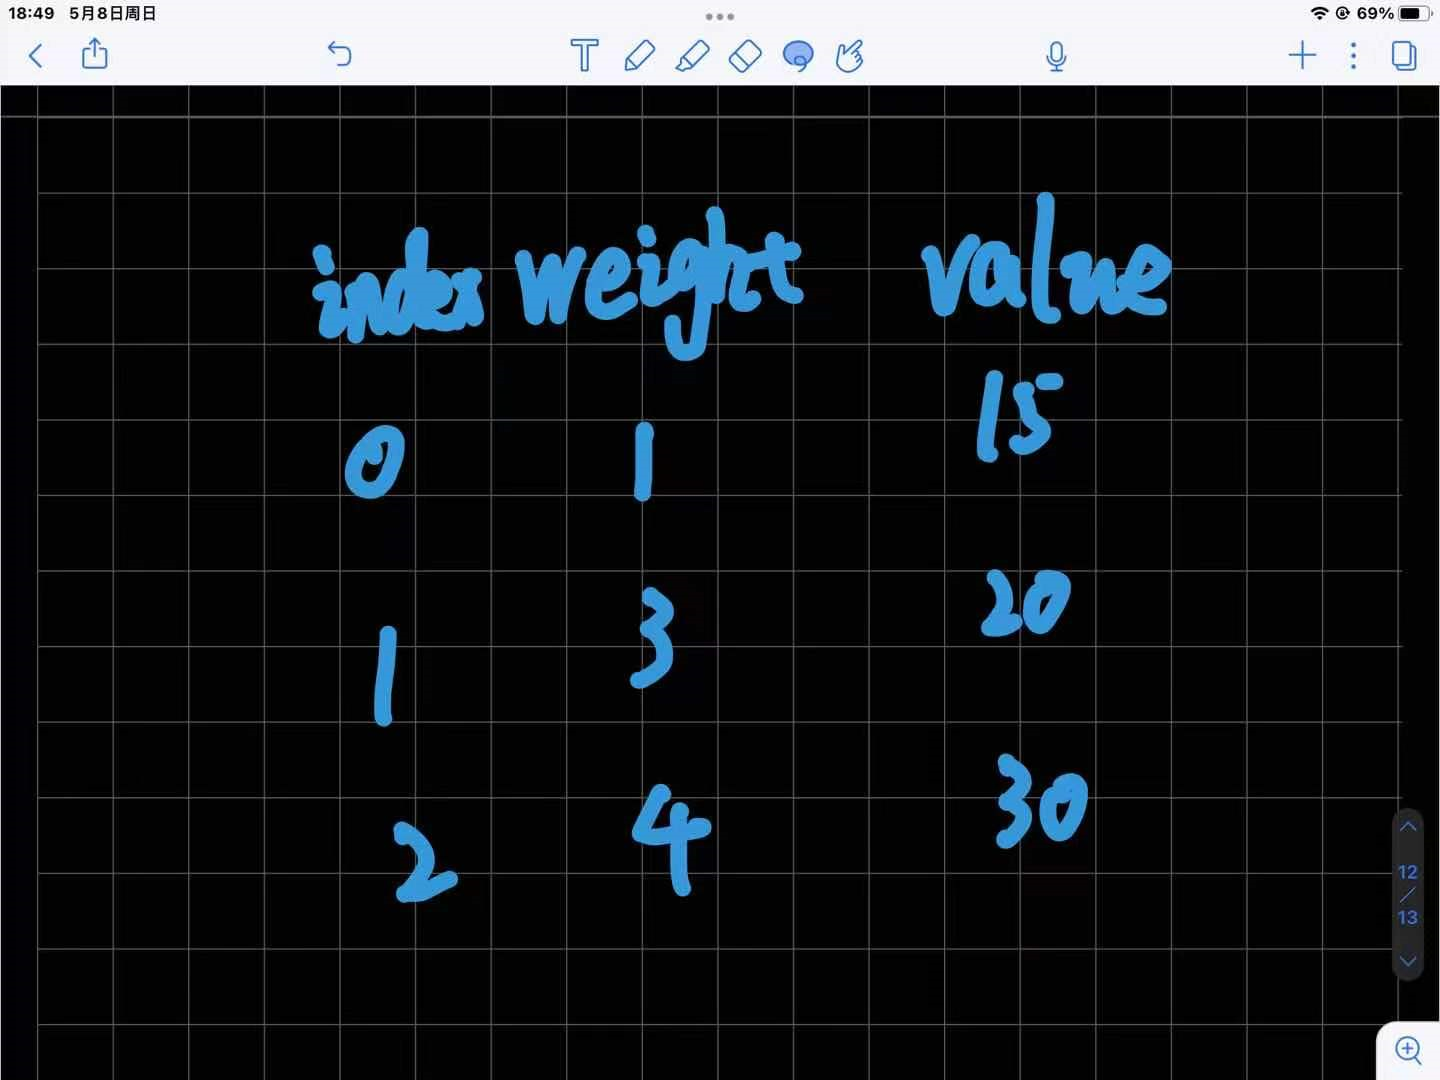 18:49 5月8日周日 69%
index weight value
0 1 15
1 3 20
2 4 30
12
/
13